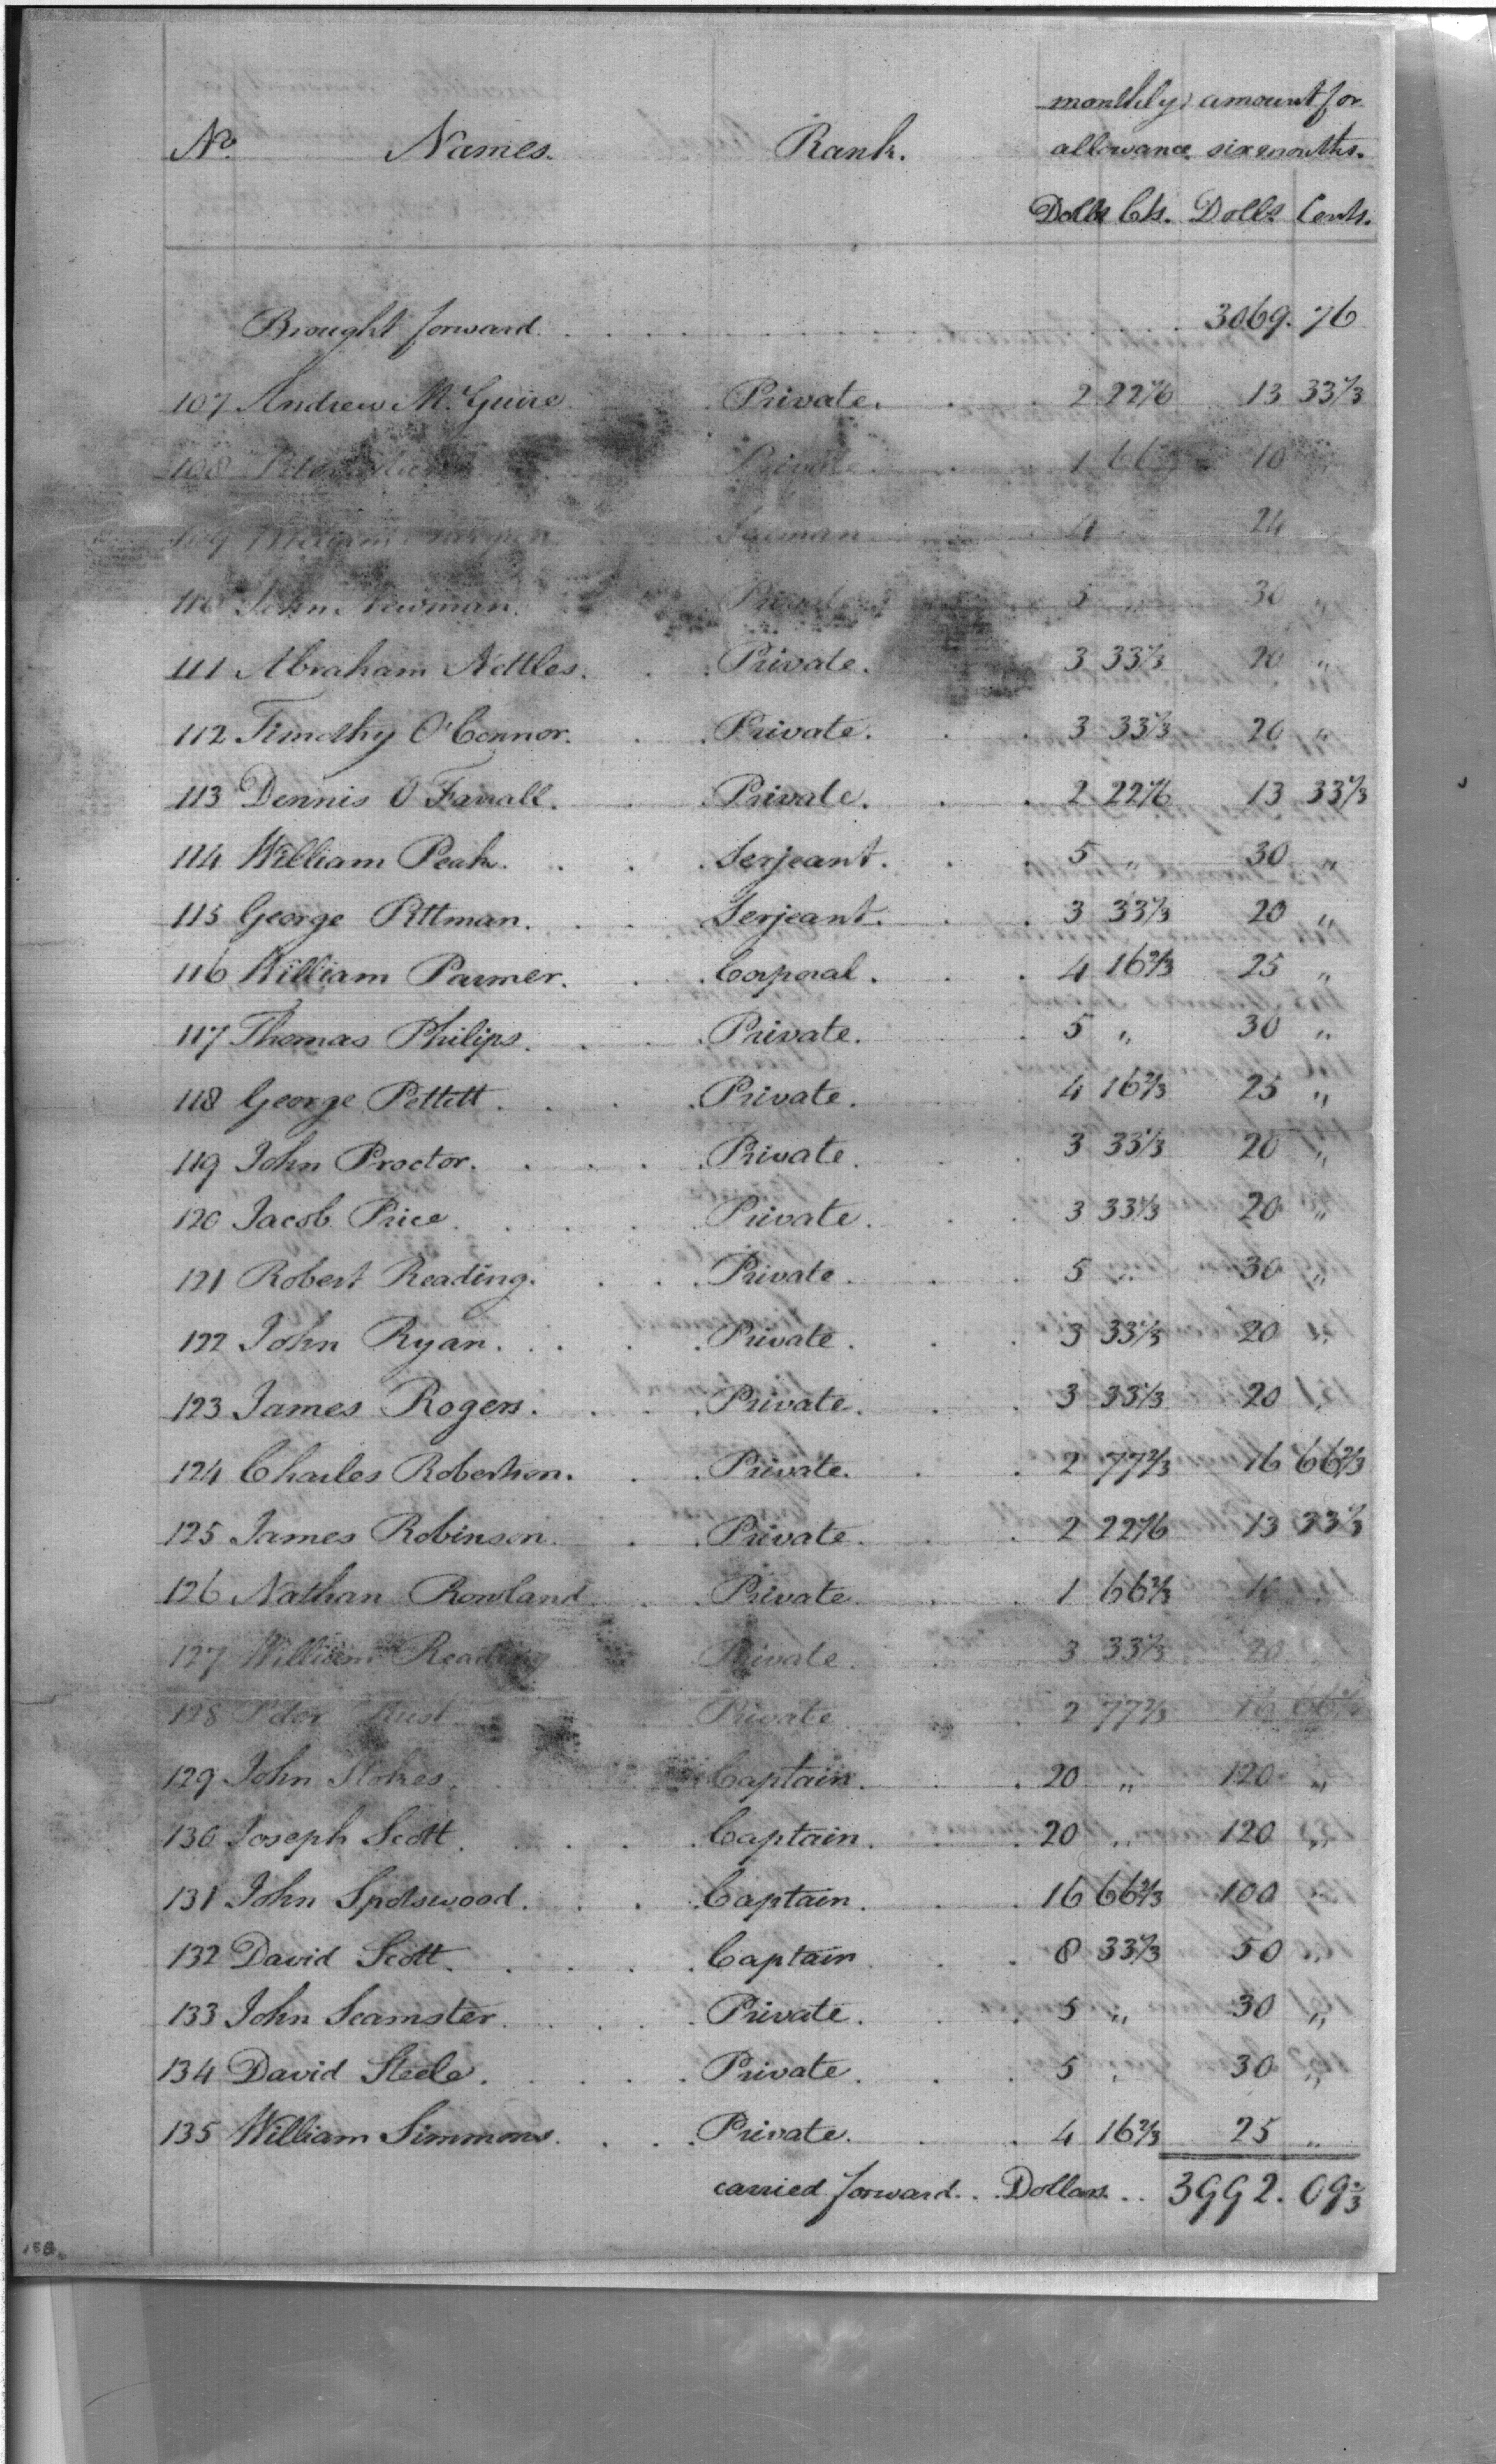 monthly amount for
No. Names. Rank. allowance six months.
Dolls Cts. Dolls Cents.
Brought forward 3069. 76
107 Andrew McGuire Private. 2 22 2/6 13 33 1/3
108 Private 1 66 10 "
109 Seaman 4 24
110 John Newman. Private 5 " 30 "
111 Abraham Nettles. Private. 3 33 1/3 20 "
112 Timothy O'Connor. Private. 3 33 1/3 20 "
113 Dennis O Farrall. Private. 2 22 2/6 13 33 1/3
114 William Peak. Serjeant. 5 " 30 "
115 George Pittman. Serjeant. 3 33 1/3 20 "
116 William Parmer. Corporal. 4 16 2/3 25 "
117 Thomas Philips. Private. 5 " 30 "
118 George Pettitt. Private. 4 16 2/3 25 "
119 John Proctor. Private. 3 33 1/3 20 "
120 Jacob Price. Private. 3 33 1/3 20 "
121 Robert Reading. Private. 5 " 30 "
122 John Ryan. Private. 3 33 1/3 20 "
123 James Rogers. Private. 3 33 1/3 20 "
124 Charles Robertson. Private. 2 77 2/3 16 66 2/3
125 James Robinson. Private. 2 22 2/6 13 33 1/3
126 Nathan Rowland Private. 1 66 2/3 10 "
127 William Reading Private. 3 33 1/3 20 "
128 Peter Rust Private 2 77 2/3 16 66 2/3
129 John Stokes. Captain. 20 " 120 "
130 Joseph Scott. Captain. 20 " 120 "
131 John Spotswood. Captain. 16 66 2/3 100 "
132 David Scott. Captain 8 33 1/3 50 "
133 John Seamster. Private. 5 " 30 "
134 David Steele. Private. 5 " 30 "
135 William Simmons. Private. 4 16 2/3 25 "
carried forward. Dollars. 3992. 09 2/3